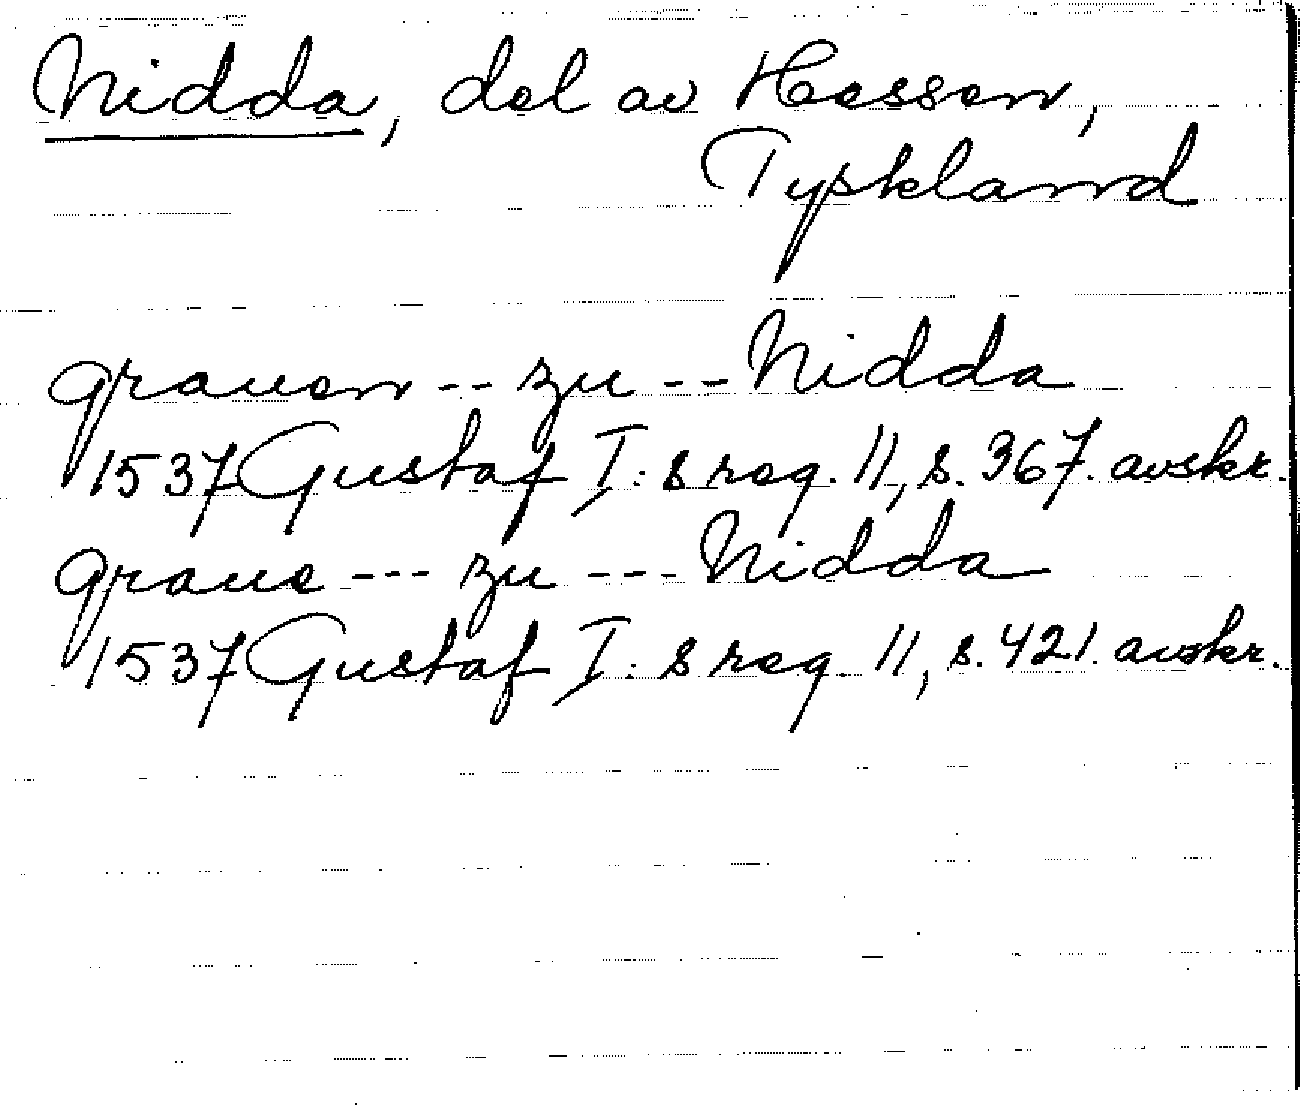 Nidda, del av Hessen,
Tyskland
grauen -- zu -- Nidda
1537 Gustaf I:s reg. 11, s. 367. avskr.
graue --- zu --- Nidda
1537 Gustaf I:s reg. 11, s. 421. avskr.